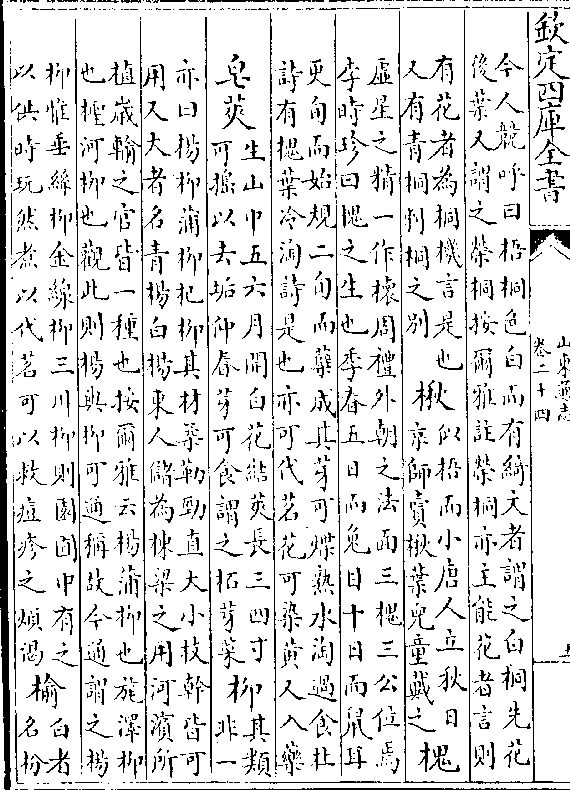 欽定四庫全書
山東通志
卷二十四
今人競呼曰梧桐色白而有綺文者謂之白桐先花
後葉又謂之榮桐按爾雅註榮桐亦主能花者言則
有花者為桐機言是也
又有青桐刺桐之別
楸
似梧而小唐人立秋日
京師賣楸葉兒童戴之
槐
虛星之精一作櫰周禮外朝之法面三槐三公位焉
李時珍曰槐之生也季春五日而兔目十日而鼠耳
更旬而始規二旬而蘂成其芽可煠熟水淘過食杜
詩有槐葉冷淘詩是也亦可代茗花可染黄又入藥
皂莢
生山中五六月開白花結莢長三四寸
可搗以去垢仲春芽可食謂之拓芽菜
柳
其類
非一
亦曰楊柳蒲柳杞柳其材柔勒勁直大小枝幹皆可
用又大者名青楊白楊東人儲為棟梁之用河濱所
植歳輸之官皆一種也按爾雅云楊蒲柳也旄澤柳
也檉河柳也觀此則楊與柳可通稱故今通謂之楊
柳惟垂絲柳金線柳三川柳則園囿中有之
以供時玩然煮以代茗可以救痘疹之煩渴
榆
白者
名枌